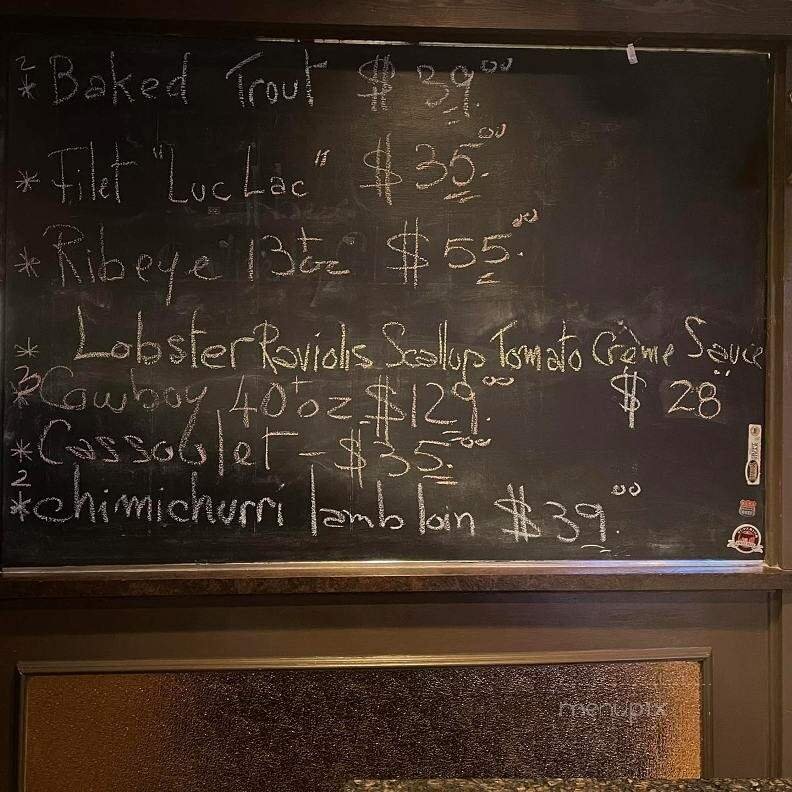 2
* Baked Trout $39.00
* Filet "Luc Lac" $35.00
* Ribeye 13+oz $55.00
* Lobster Raviolis Scallop Tomato Crème Sauce
$28
3
* Cowboy 40+oz $129.00
* Cassoulet - $35.00
2
* chimichurri lamb loin $39.00
menupix